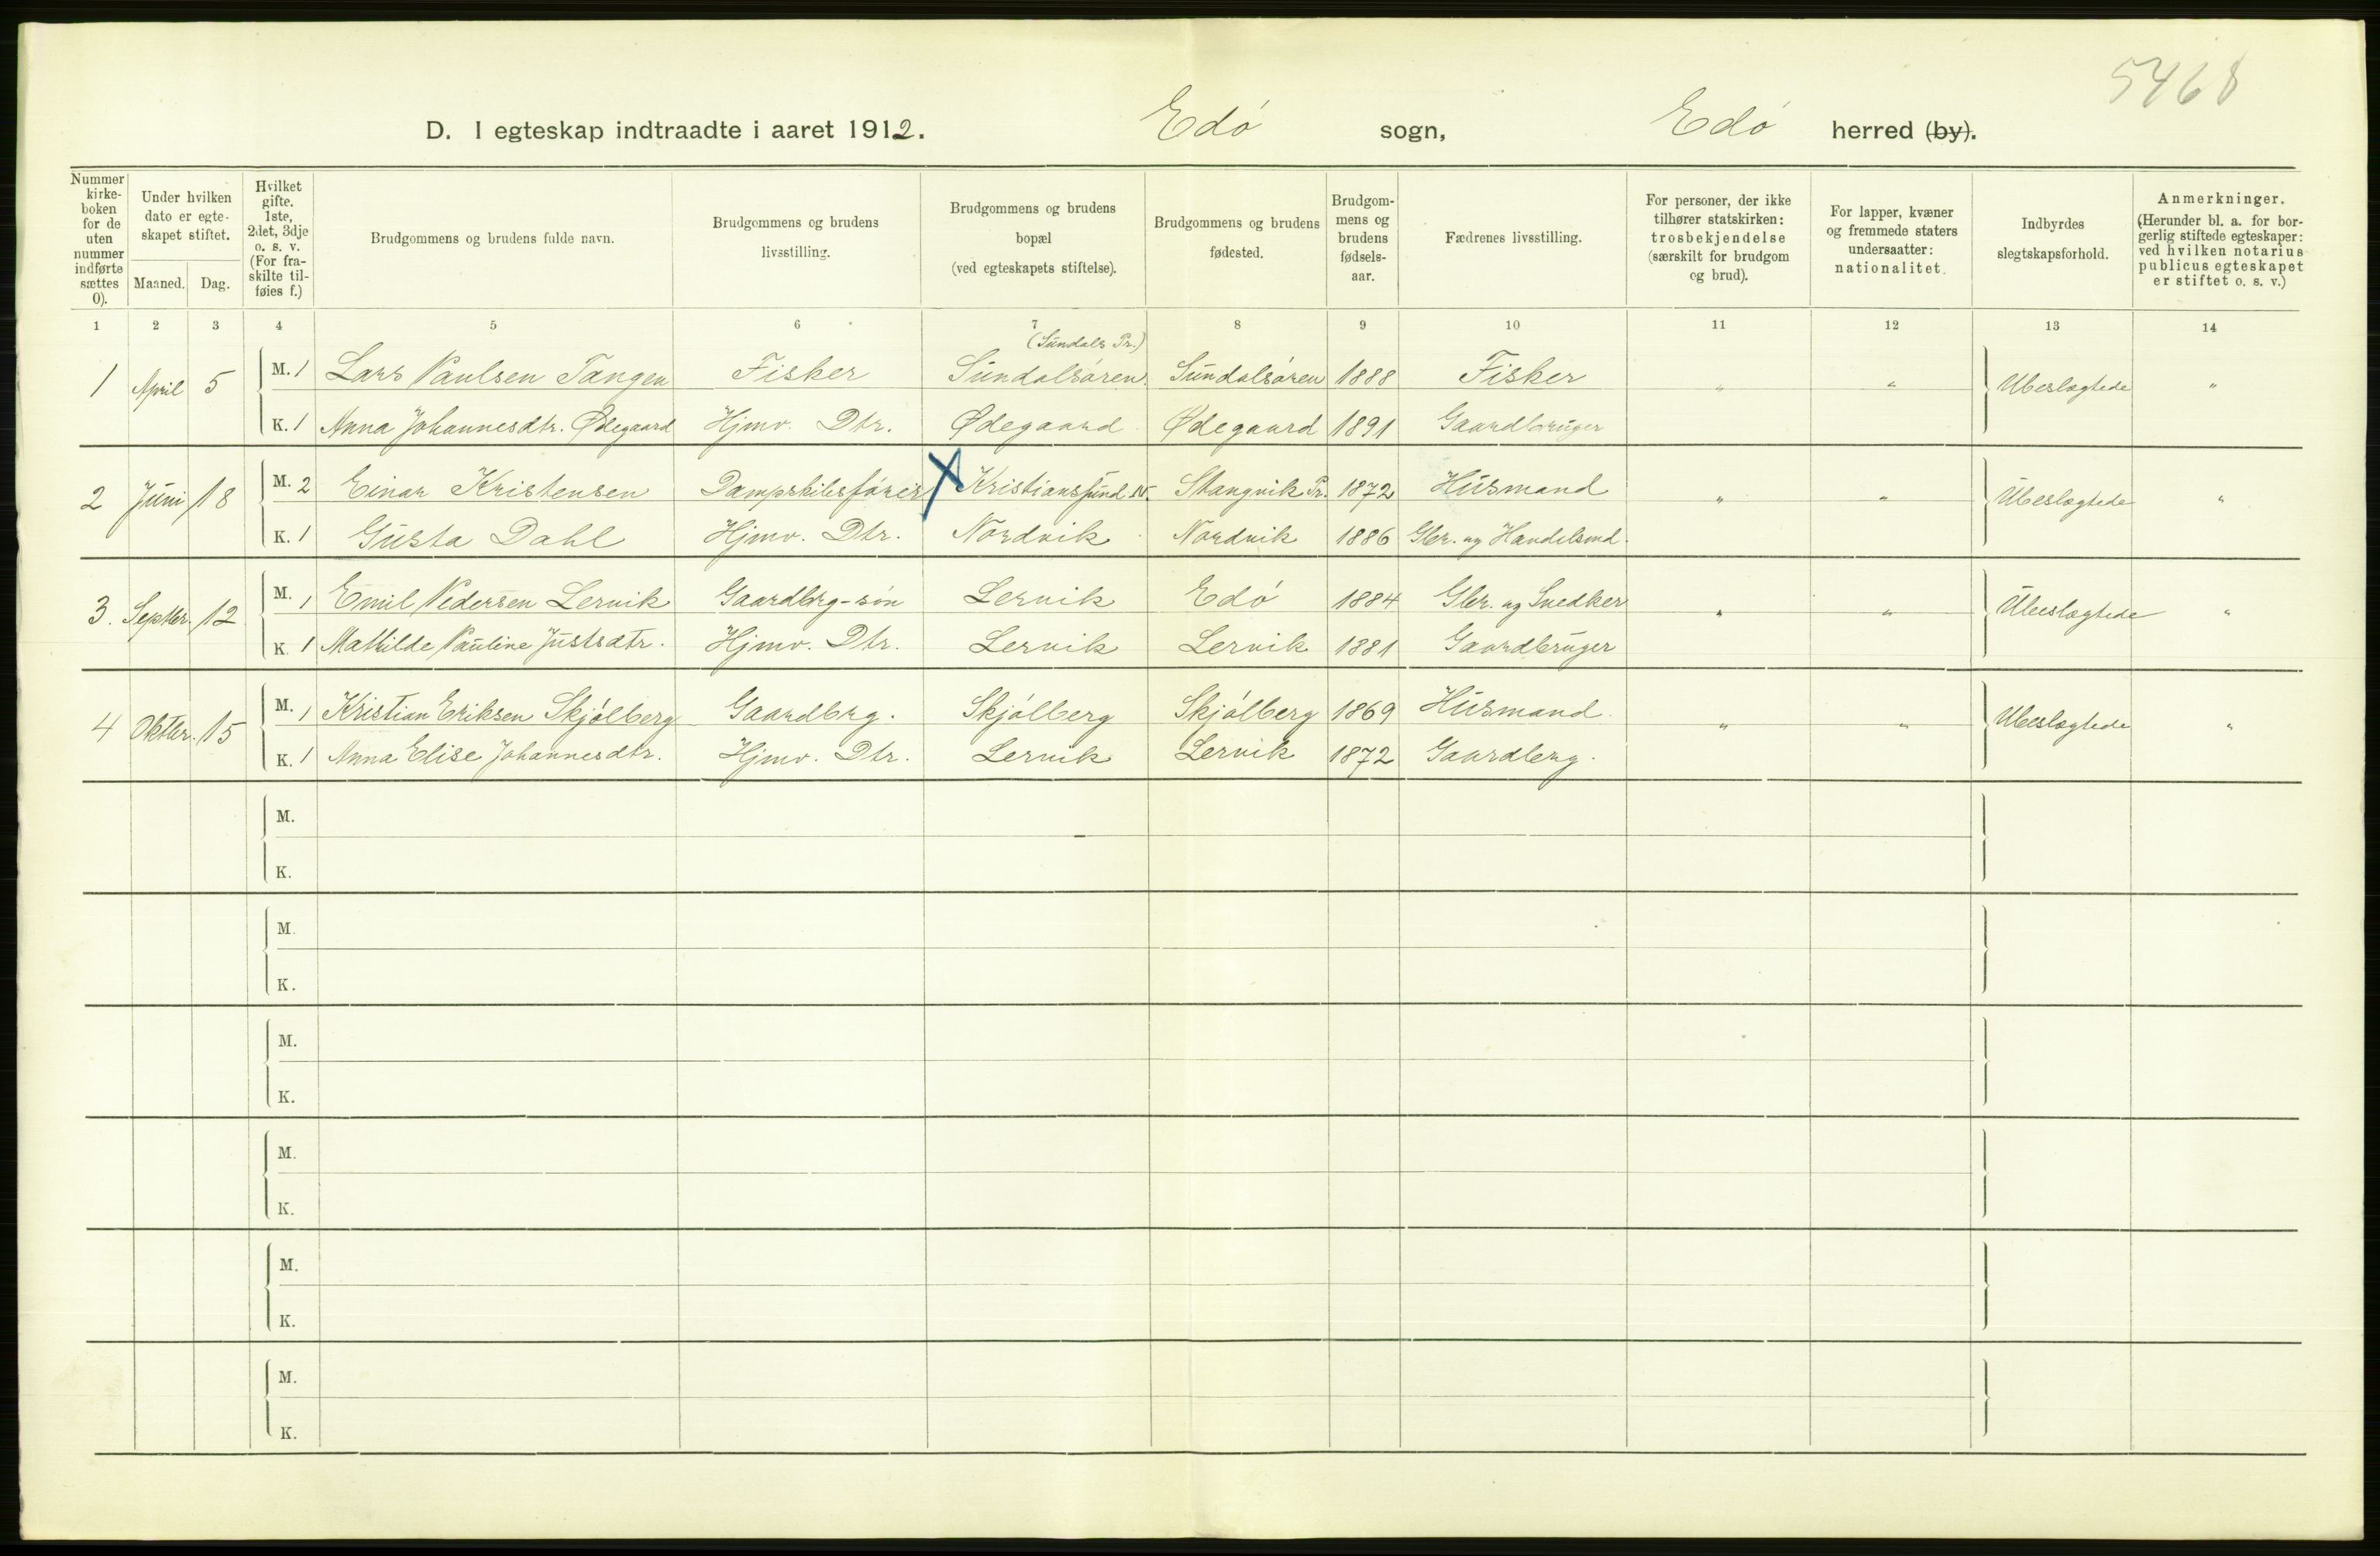 5468
D. I egteskap indtraadte i aaret 1912. Edó sogn, Edó herred (by).
Nummer kirke-boken for de uten nummer indførte sættes 0).
Under hvilken dato er egte-skapet stiftet.
Maaned. Dag.
Hvilket gifte. 1ste, 2det, 3dje o. s. v. (For fra-skilte til-føies f.)
Brudgommens og brudens fulde navn.
Brudgommens og brudens livsstilling.
Brudgommens og brudens bopæl (ved egteskapets stiftelse).
Brudgommens og brudens fødested.
Brudgom-mens og brudens fødsels-aar.
Fædrenes livsstilling.
For personer, der ikke tilhører statskirken: trosbekjendelse (særskilt for brudgom og brud).
For lapper, kvæner og fremmede staters undersaatter: nationalitet.
Indbyrdes slegtskapsforhold.
Anmerkninger. (Herunder bl. a. for bor-gerlig stiftede egteskaper: ved hvilken notarius publicus egteskapet er stiftet o. s. v.)
1 2 3 4 5 6 7 8 9 10 11 12 13 14
(Sundals Pr.)
1 April 5 M. 1 Lars Paulsen Tangen Fisker Sundalsóren Sundalsóren 1888 Fisker " " Ubeslægtede "
K. 1 Anna Johannesdtr. Ødegaard Hjmv. Dtr. Ødegaard Ødegaard 1891 Gaardbruger
2 Juni 18 M. 2 Einar Kristensen Dampskibsfórer X Kristianssund N. Stangvik Pr. 1872 Husmand " " Ubeslægtede "
K. 1 Gusta Dahl Hjmv. Dtr. Nordvik Nordvik 1886 Gbr. og Handelsmd.
3. Septbr. 12 M. 1 Emil Pedersen Lervik Gaardbrg-són Lervik Edó 1884 Gbr. og Snedker " " Ubeslægtede "
K. 1 Mathilde Pauline Justsdtr. Hjmv. Dtr. Lervik Lervik 1881 Gaardbruger
4 Oktbr. 15 M. 1 Kristian Eriksen Skjólberg Gaardbrg. Skjólberg Skjólberg 1869 Husmand " " Ubeslægtede "
K. 1 Anna Elise Johannesdtr. Hjmv. Dtr. Lervik Lervik 1872 Gaardbrg.
M.
K.
M.
K.
M.
K.
M.
K.
M.
K.
M.
K.